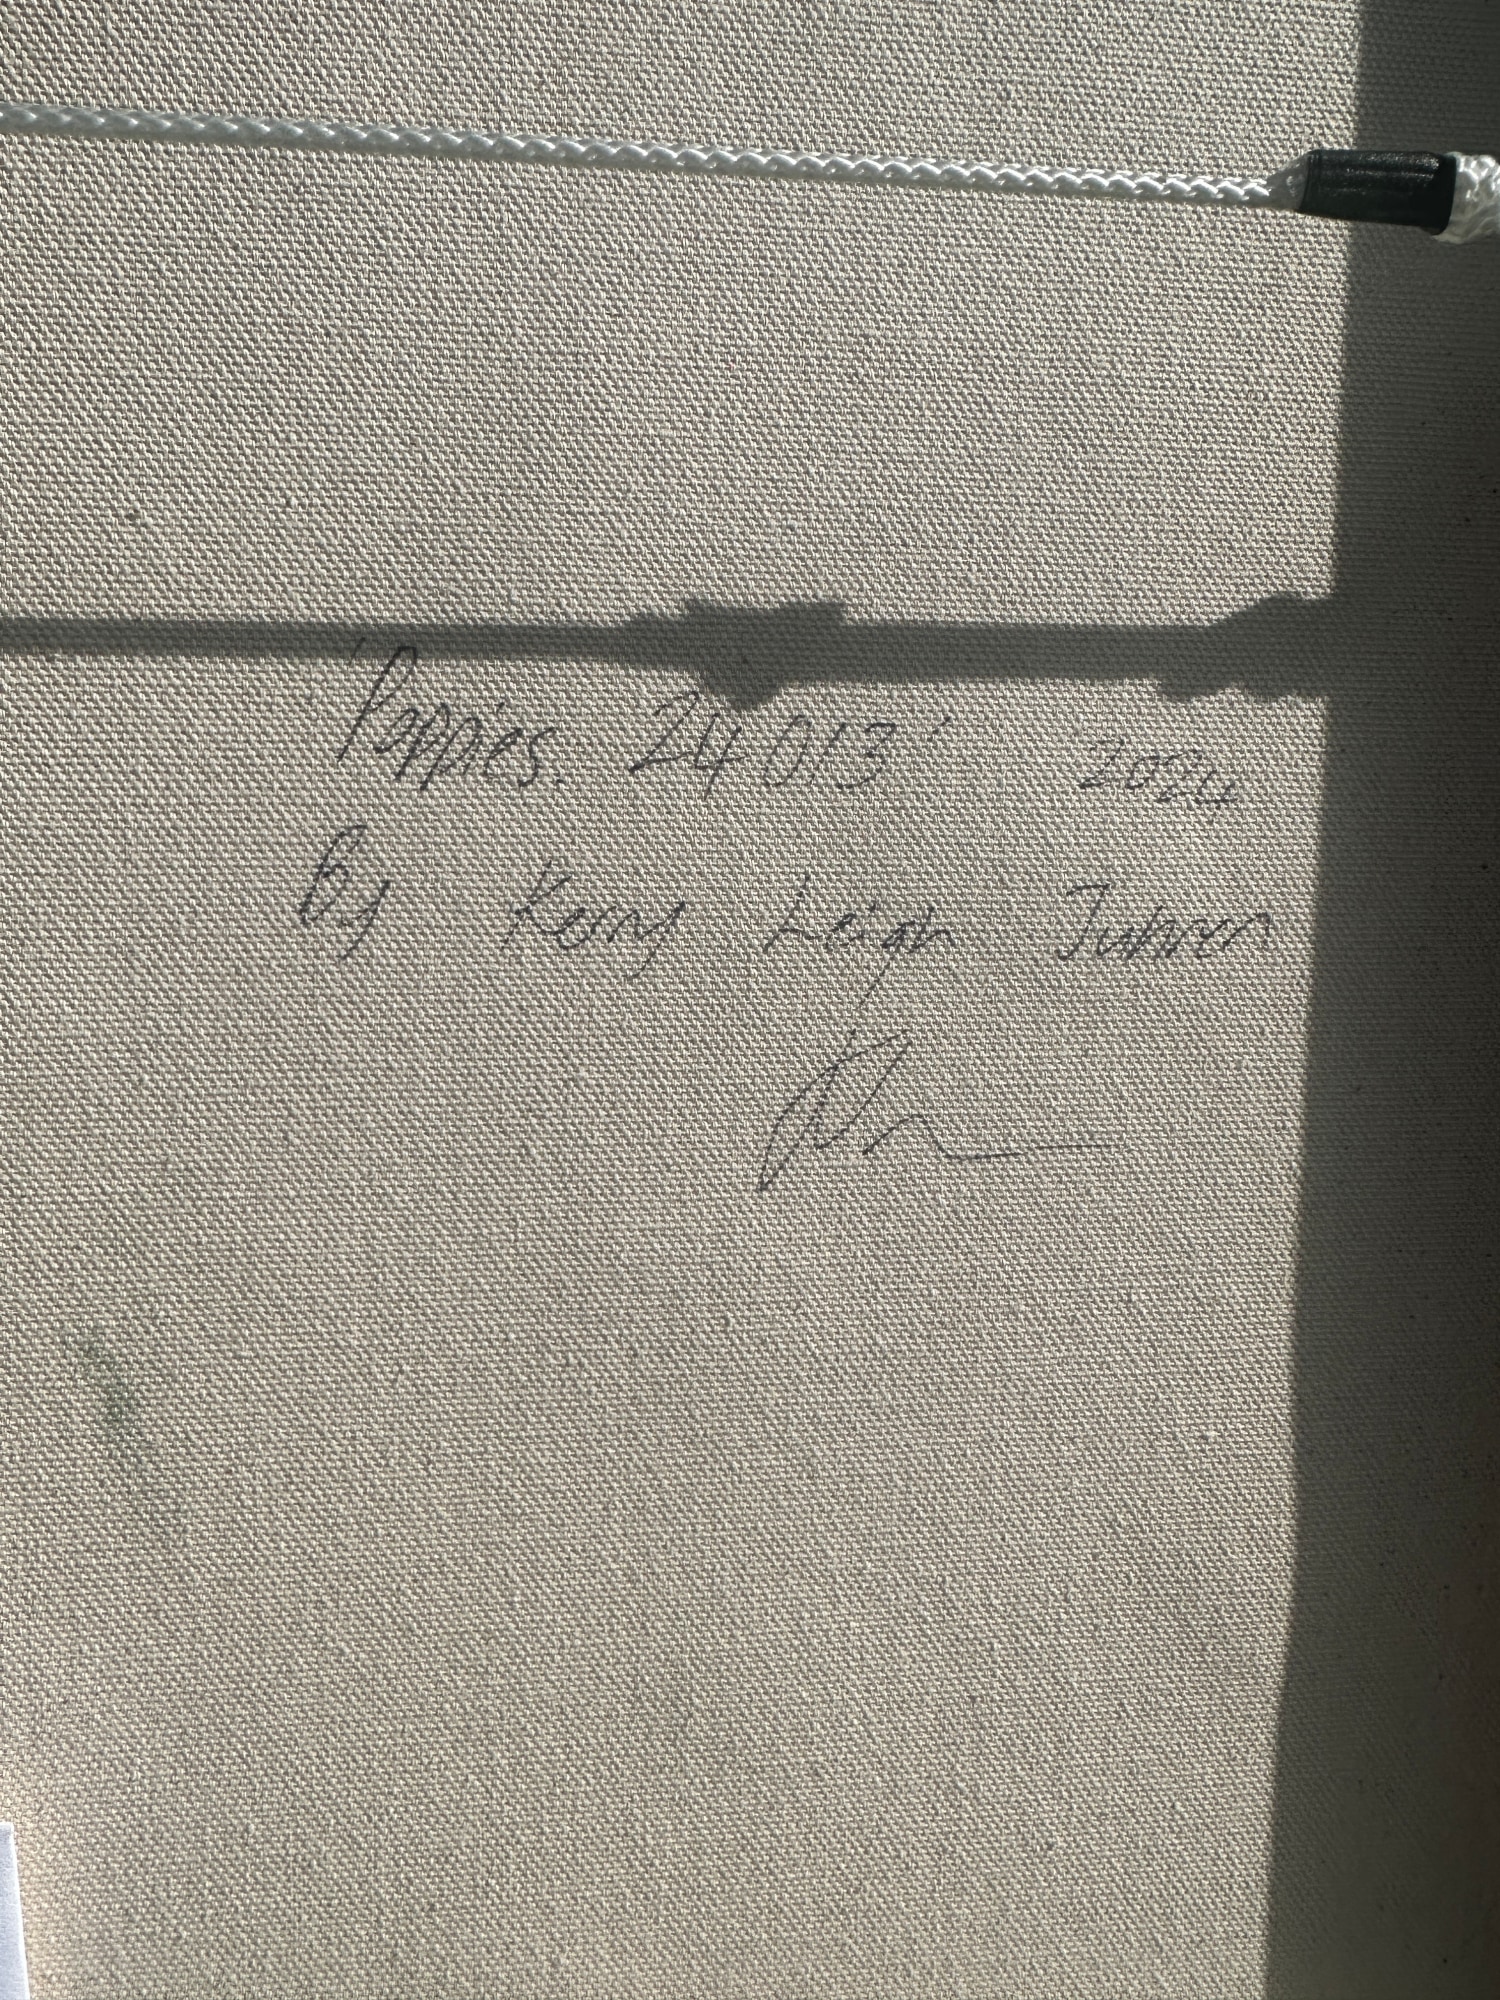 'Poppies. 24013' 2024
By Kerry Leigh